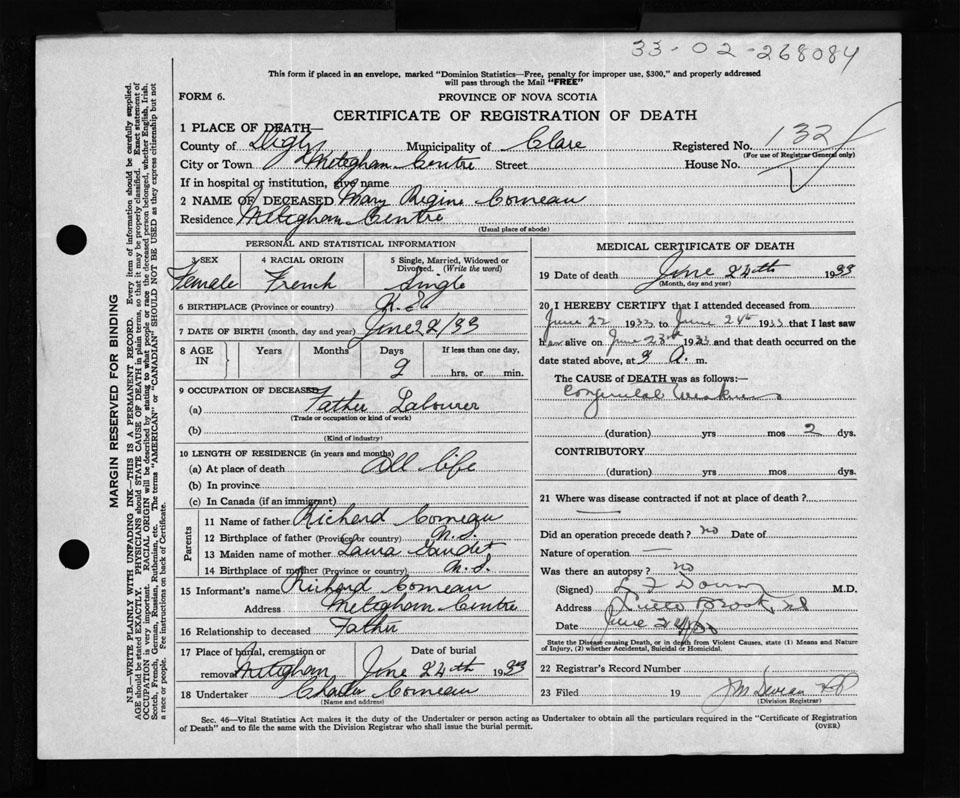 33-02-268084
This form if placed in an envelope, marked "Dominion Statistics—Free, penalty for improper use, $300," and properly addressed
will pass through the Mail "FREE"
FORM 6.
PROVINCE OF NOVA SCOTIA
CERTIFICATE OF REGISTRATION OF DEATH
1 PLACE OF DEATH—
County of Digby Municipality of Clare Registered No. 132
(For use of Registrar General only)
City or Town Meteghan Centre Street House No.
If in hospital or institution, give name
2 NAME OF DECEASED Mary Regine Comeau
Residence Meteghan Centre
(Usual place of abode)
PERSONAL AND STATISTICAL INFORMATION
3 SEX 4 RACIAL ORIGIN 5 Single, Married, Widowed or
Divorced. (Write the word)
Female French Single
6 BIRTHPLACE (Province or country) N.S.
7 DATE OF BIRTH (month, day and year) June 22/33
8 AGE IN Years Months Days If less than one day,
hrs. or min.
9 OCCUPATION OF DECEASED
(a) Father Labourer
(Trade or occupation or kind of work)
(b)
(Kind of industry)
10 LENGTH OF RESIDENCE (in years and months)
(a) At place of death All life
(b) In province
(c) In Canada (if an immigrant)
Parents
11 Name of father Richard Comeau
12 Birthplace of father (Province or country) N.S.
13 Maiden name of mother Laura Gaudet
14 Birthplace of mother (Province or country) N.S.
15 Informant's name Richard Comeau
Address Meteghan Centre
16 Relationship to deceased Father
17 Place of burial, cremation or removal Date of burial
Meteghan June 24th 1933
18 Undertaker Charles Comeau
(Name and address)
MEDICAL CERTIFICATE OF DEATH
19 Date of death June 24th 1933
(Month, day and year)
20 I HEREBY CERTIFY that I attended deceased from
June 22 1933 to June 24th 1933 that I last saw
h alive on June 23rd 1933 and that death occurred on the
date stated above, at 9 A. m.
The CAUSE of DEATH was as follows:—
Congenital Weakness
(duration) yrs mos 2 dys.
CONTRIBUTORY
(duration) yrs mos dys.
21 Where was disease contracted if not at place of death?
Did an operation precede death? no Date of
Nature of operation —
Was there an autopsy? no
(Signed) M.D.
Address Brook, NS
Date June 24/33
State the Disease causing Death, or in death from Violent Causes, state (1) Means and Nature
of Injury, (2) whether Accidental, Suicidal or Homicidal.
22 Registrar's Record Number
23 Filed 19
(Division Registrar)
Sec. 46—Vital Statistics Act makes it the duty of the Undertaker or person acting as Undertaker to obtain all the particulars required in the "Certificate of Registration
of Death" and to file the same with the Division Registrar who shall issue the burial permit. (OVER)
MARGIN RESERVED FOR BINDING
N.B.—WRITE PLAINLY WITH UNFADING INK—THIS IS A PERMANENT RECORD. Every item of information should be carefully supplied.
AGE should be stated EXACTLY. PHYSICIANS should STATE CAUSE OF DEATH in plain terms, so that it may be properly classified. Exact statement of
OCCUPATION is very important. RACIAL ORIGIN will be described by stating to what people or race the deceased person belonged, whether English, Irish,
Scotch, French, German, Russian, Ruthenian, etc. The terms "AMERICAN" or "CANADIAN" SHOULD NOT BE USED as they express citizenship but not
a race or people. See instructions on back of Certificate.